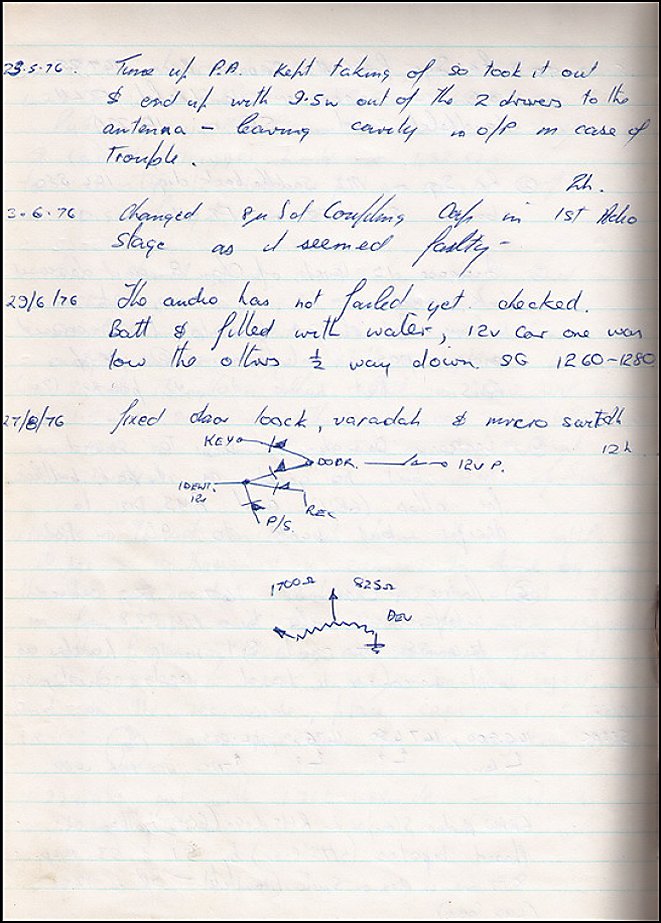 23.5.76. Tune up P.A. kept taking of so took it out
& end up with 9.5w out of the 2 drivers to the
antenna – leaving cavity in O/P in case of
trouble.
2h.
3.6.76 changed 8μ Sol Coupling Cap in 1st Adio
stage as it seemed faulty –
29/6/76 The audio has not failed yet. checked.
Batt & filled with water, 12v car one was
low the others ½ way down. SG 1260–1280
27/8/76 fixed door loock, & micro switch
12h
KEY
DOOR. 12V P.
IDENT.
12v
REC
P/S.
1700Ω 825Ω
DEV